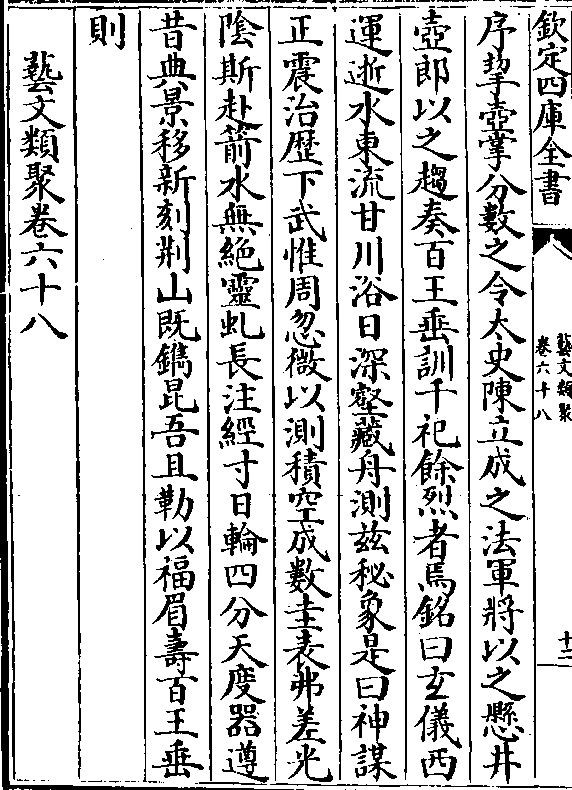 欽定四庫全書
藝文類聚
卷六十八
十二
序挈壺掌分數之令太史陳立成之法軍將以之懸井
壺郎以之趨奏百王垂訓千祀餘烈者焉銘曰玄儀西
運逝水東流甘川浴日深壑藏舟測兹秘象是曰神謀
正震治歴下武惟周忽微以測積空成數圭表弗差光
陰斯赴箭水無絶靈虬長注經寸日輪四分天度器遵
昔典景移新刻荆山既鐫昆吾且勒以福眉壽百王垂
則
藝文類聚卷六十八